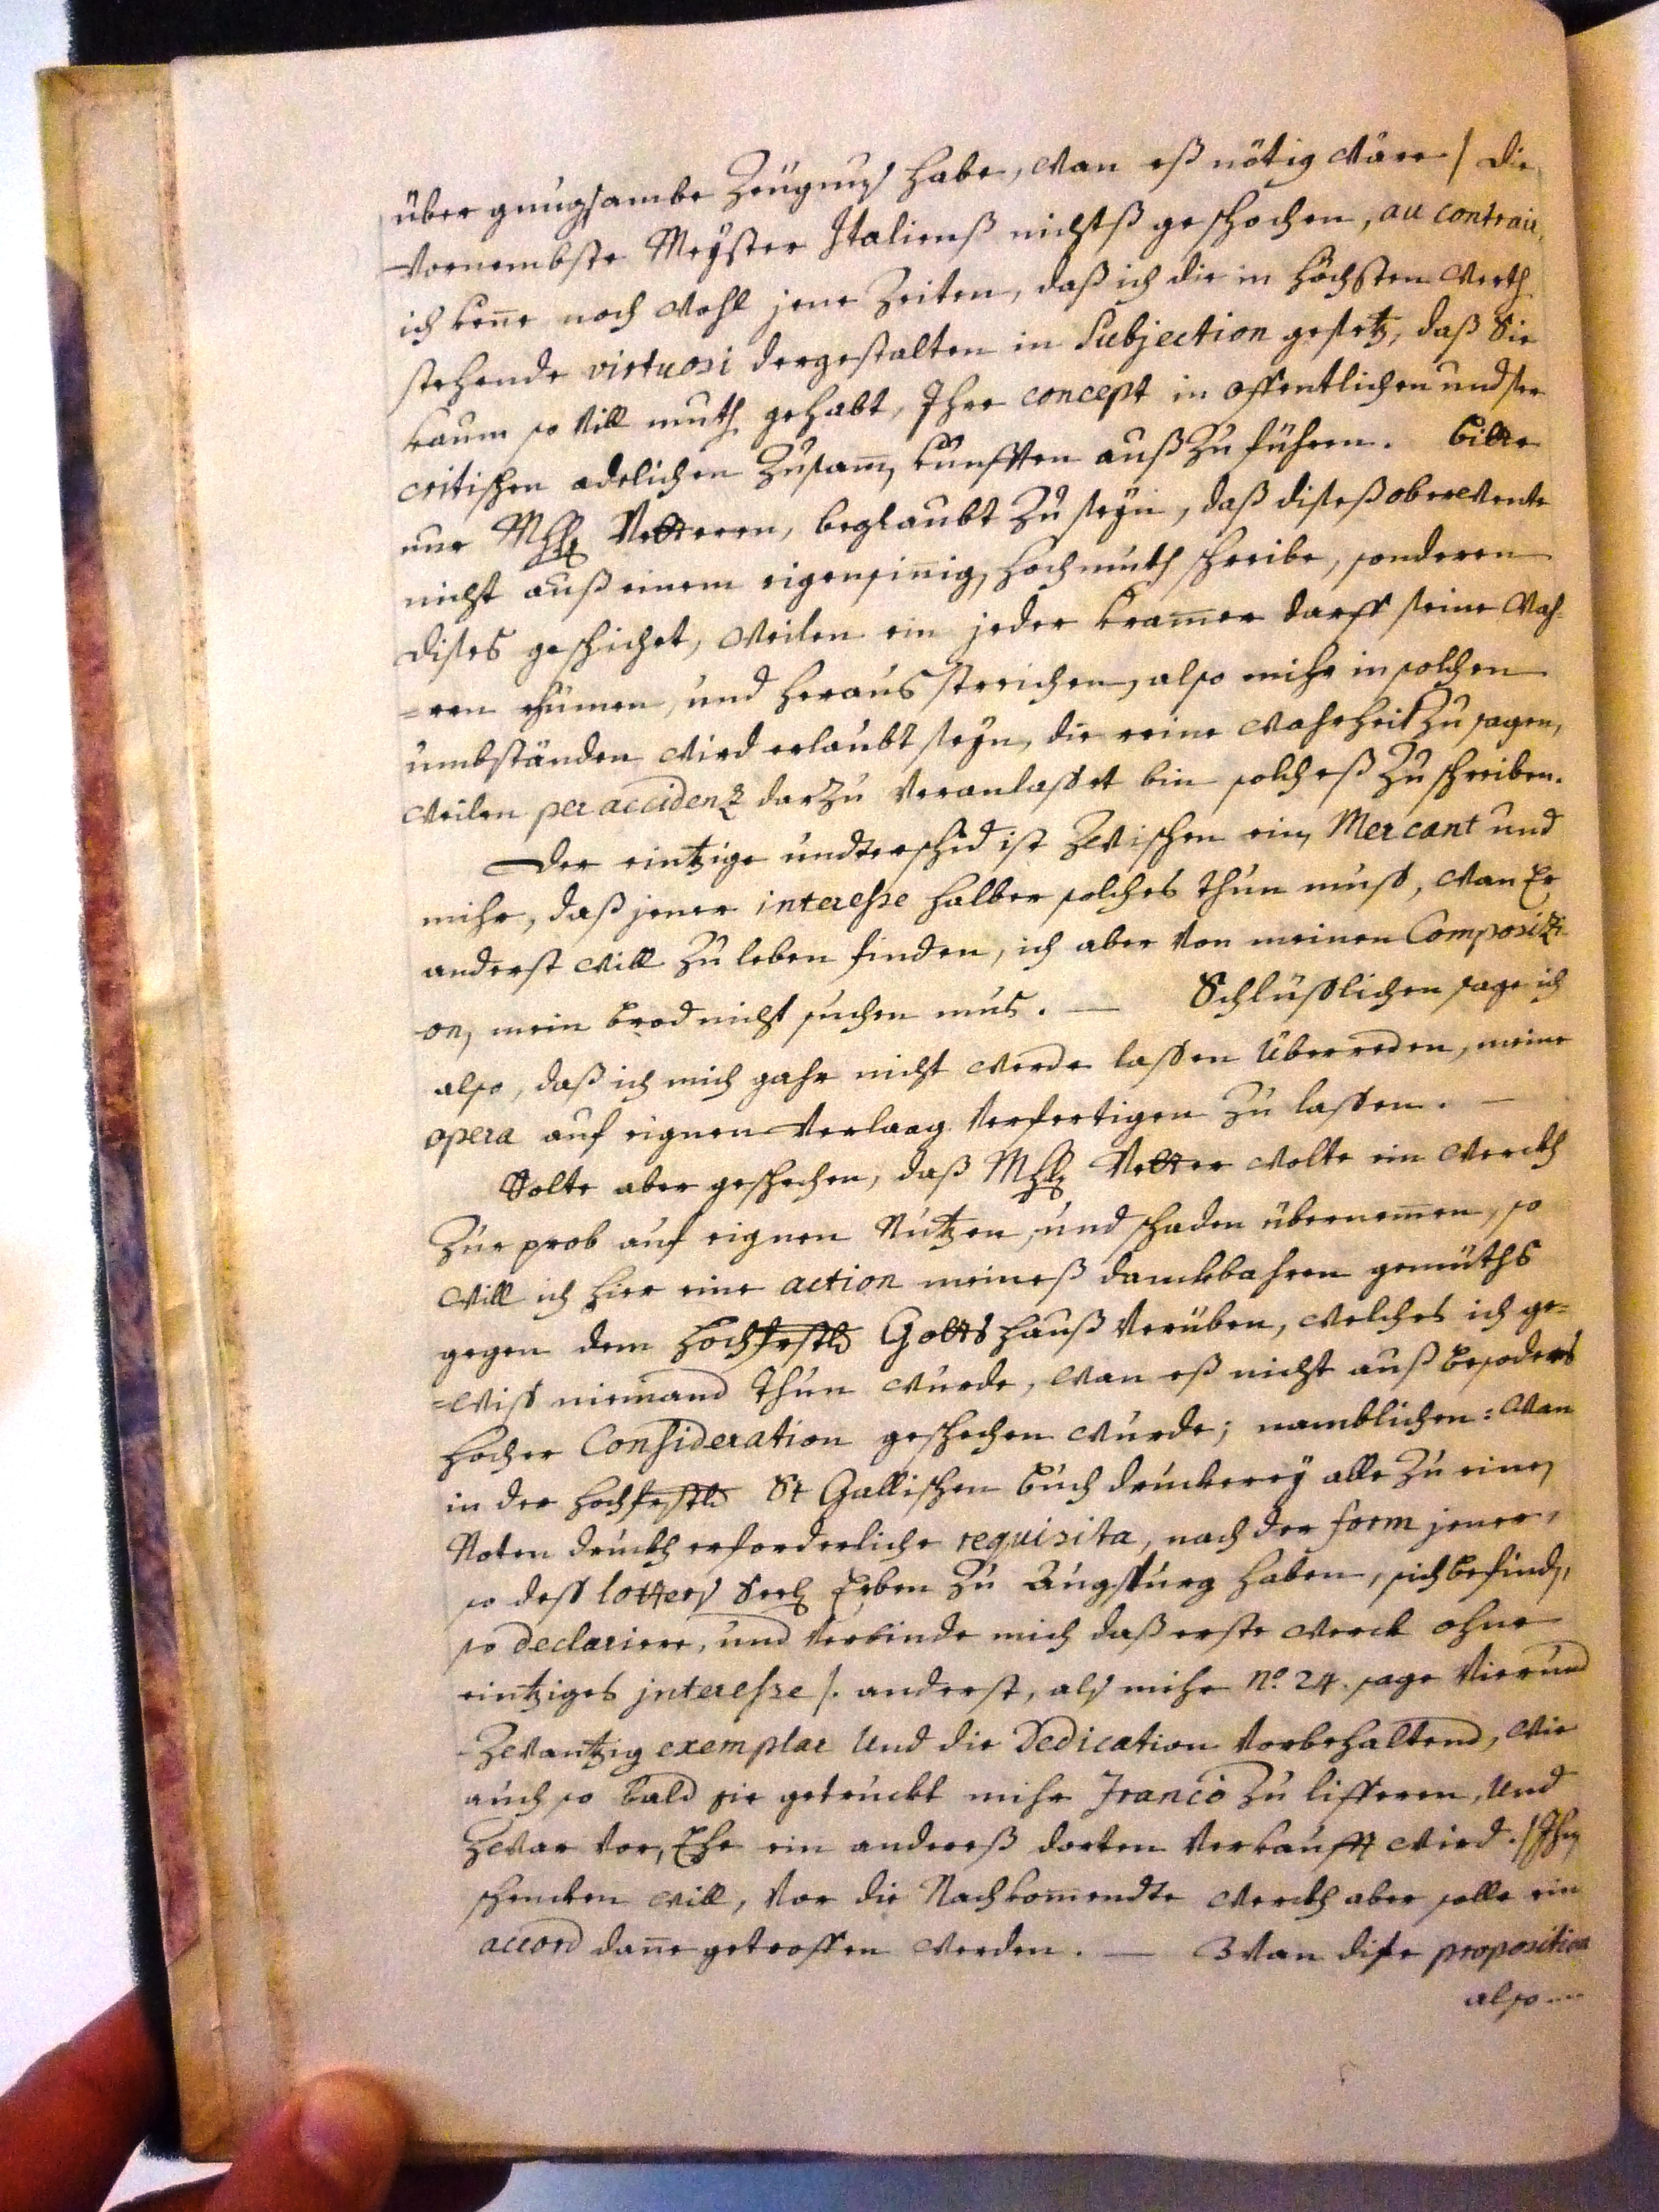 über gnugsambe Zeügnus habe, wan eß nötig wäre / die
Vornembste Meÿster Italienß nichtß geschochen, au contrair,
ich kenne noch wohl jene Zeiten, daß ich die in höchsten werth
stehende virtuosi dergestalten in Subjection gesetz, daß Sie
kaum so Vill muth gehabt, Ihre concept in offentlichen undter
critischen adelichen Zusam̄, kunfften außzuführen. bitte
nur Vetteren, beglaubt zu seÿn, daß dises oberwente
nicht auß einem eigensinnig, hochmuth schreibe, sonderen
dises geschichet, weilen ein jeder kramer darff seine Wah-
=ren rhümen, und heraus streichen, also mihr in solchen
umbständen wird erlaubt seÿn, die reine wahrheit zu sagen,
weilen per accidenz darzu Veranlasset bin solcheß zu schreiben.
Der eintzige undterschid ist zwischen ein, Mercant und
mihr, daß jener interesse halber solches thun muss, wan Er
anderst will zu leben finden, ich aber Von meinen Compositi-
on, mein brod nicht suchen mus. — Schlüsslichen sage ich
also, daß ich mich gahr nicht werde lassen überreden, meine
opera auf eignen Verlaag Verfertigen zu lassen. —
Solte aber geschechen, daß Vetter wolte ein werckh
zur prob auf eignen Nutzen, und schaden übernem̄en, so
will ich hier eine action meineß danckbahren gemüths
gegen dem hochfrstl. Gottshauß Verüben, welches ich ge=
=wiss niemand thun wurde, wan eß nicht auß besoders
hocher Consideration geschechen wurde; namblichen: wan
in der hochfrstl. St Gallischen buch druckereÿ alle zu einen
Noten druckh erforderliche requisita, nach der form jener,
so dess lotters seel. Erben zu Augspurg haben, sich befind,
so declariere, und Verbinde mich daß erste werck ohne
eintziges jnteresse /. anderst, als mihr no. 24. sage Vierund
zwantzig exemplar Und die Dedication Vorbehaltend, wie
auch so bald sie getruckt mihr Franco zu lifferen, Und
zwar Vor, Ehe ein andereß dorten Verkaufft wird. / Ihm
schencken will, Vor die Nachkommendte werckh aber solle ein
accord danne getroffen werden. — Wan dise proposition
also